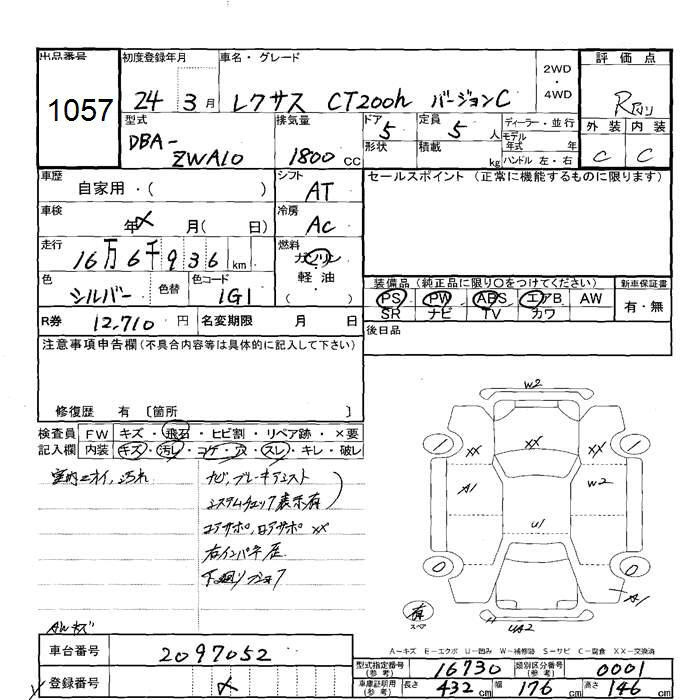 出品番号
1057
初度登録年月
24 3月
車名・グレード
レクサス CT200h バージョンC
2WD
4WD
評価点
R
外装 内装
C C
型式
DBA-
ZWA10
排気量
1800 CC
ドア 5
形状
定員 5 人
積載 kg
ディーラー・並行
モデル
年式 年
ハンドル 左・右
車歴
自家用・( )
シフト
AT
セールスポイント (正常に機能するものに限ります)
車検
年 月( 日)
冷房
AC
走行
16万6千936 km
燃料
ガソリン
軽油
( )
色
シルバー
色替
色コード
1G1
装備品 (純正品に限り〇をつけてください)
PS PW ABS エアB AW
SR ナビ TV カワ
新車保証書
有・無
R券 12,710 円
名変期限 月 日
後日品
注意事項申告欄(不具合内容等は具体的に記入して下さい)
修復歴 有 〔箇所 〕
検査員
記入欄
FW キズ・飛石・ヒビ割・リペア跡・×要
内装 キズ・汚レ・コゲ・穴・スレ・キレ・破レ
室内ニオイ、汚れ
ナビ、ブレーキアシスト
システムチェック表示有
コアサポ、ロアサポ XX
W2
XX XX XX
A1 W2
U1
A1
UA2
有
スペア
A-キズ E-エクボ U-凹み W-補修跡 S-サビ C-腐食 XX-交換済
車台番号 2097052
登録番号
型式指定番号
(参考)
16730
類別区分番号
(参考)
0001
車庫証明用
(参考)
長さ 432 cm 幅 176 cm 高さ 146 cm